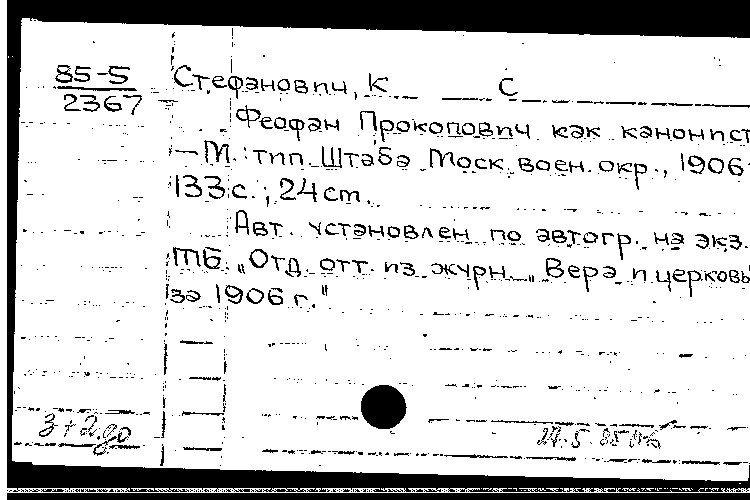 85-5
2367
Стефанович, К С
Феофан Прокопович как канонист
— М.: тип. Штаба Моск. воен. окр., 1906
133 с.; 24 cm.
Авт. установлен по автогр. на экз.
ГПБ. „Отд. отт. из журн. „Вера и церковь
за 1906 г."
3+2 до
24.5.85